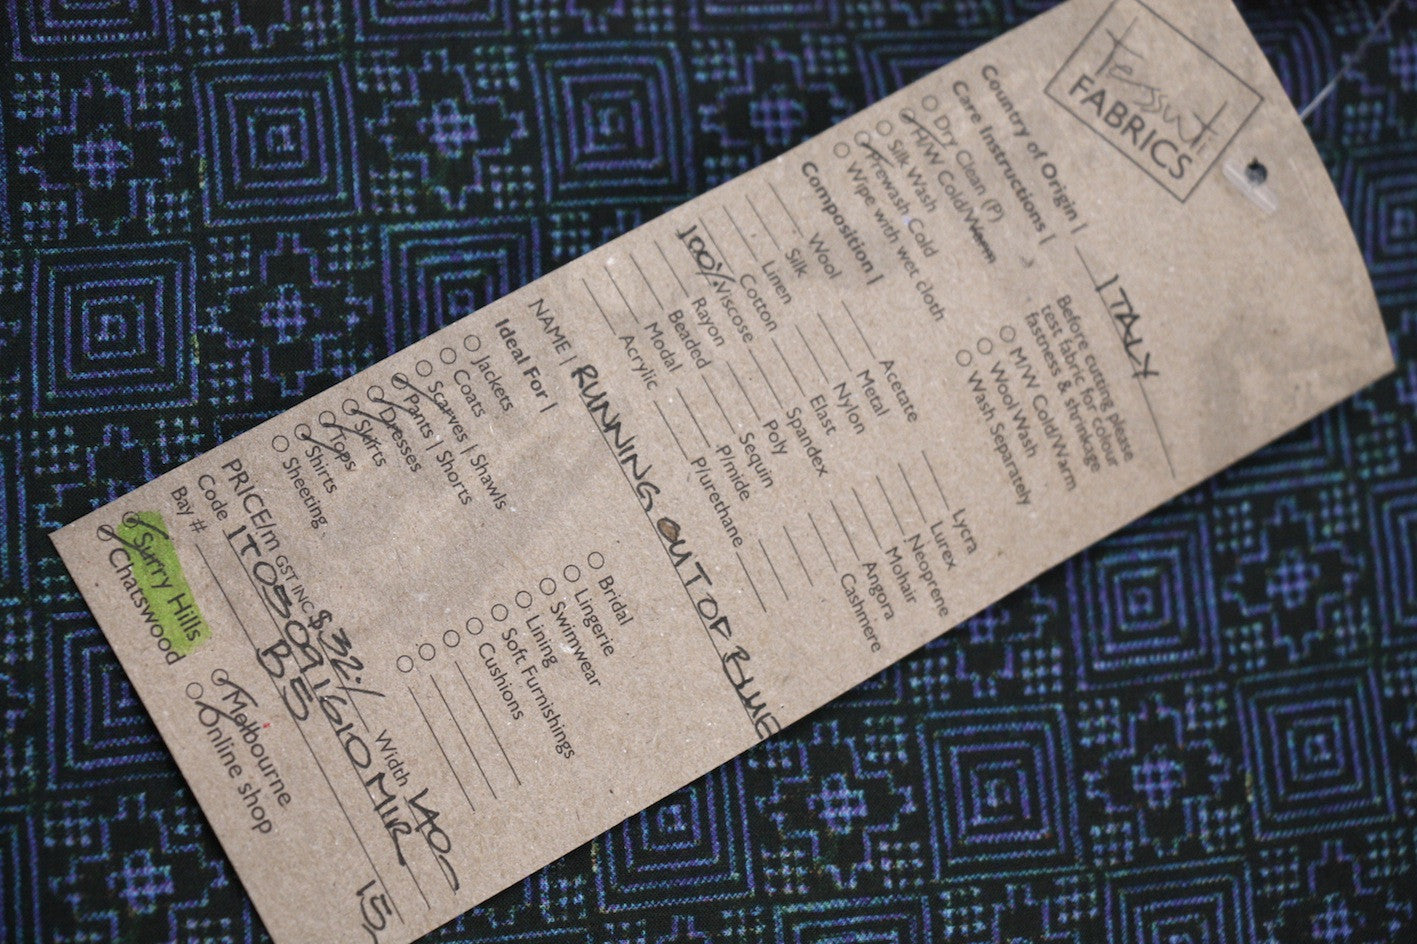 tessuti
FABRICS
Country of Origin | ITALY
Care Instructions |
Before cutting please
test fabric for colour
fastness & shrinkage
Dry Clean (P)
H/W Cold/Warm
Silk Wash
Prewash Cold
Wipe with wet cloth
M/W Cold/Warm
Wool Wash
Wash Separately
Composition |
Wool Acetate Lycra
Silk Metal Lurex
Linen Nylon Neoprene
Cotton Elast Mohair
100% Viscose Spandex Angora
Rayon Poly Cashmere
Beaded Sequin
Modal P/mide
Acrylic P/urethane
NAME | RUNNING OUT OF BLUE
Ideal For |
Jackets Bridal
Coats Lingerie
Scarves | Shawls Swimwear
Pants | Shorts Lining
Dresses Soft Furnishings
Skirts Cushions
Tops
Shirts
Sheeting
PRICE/m GST INC $32./ Width 140
Code ITO3091610MIR
Bay # B5 15
Surry Hills Melbourne
Chatswood Online shop